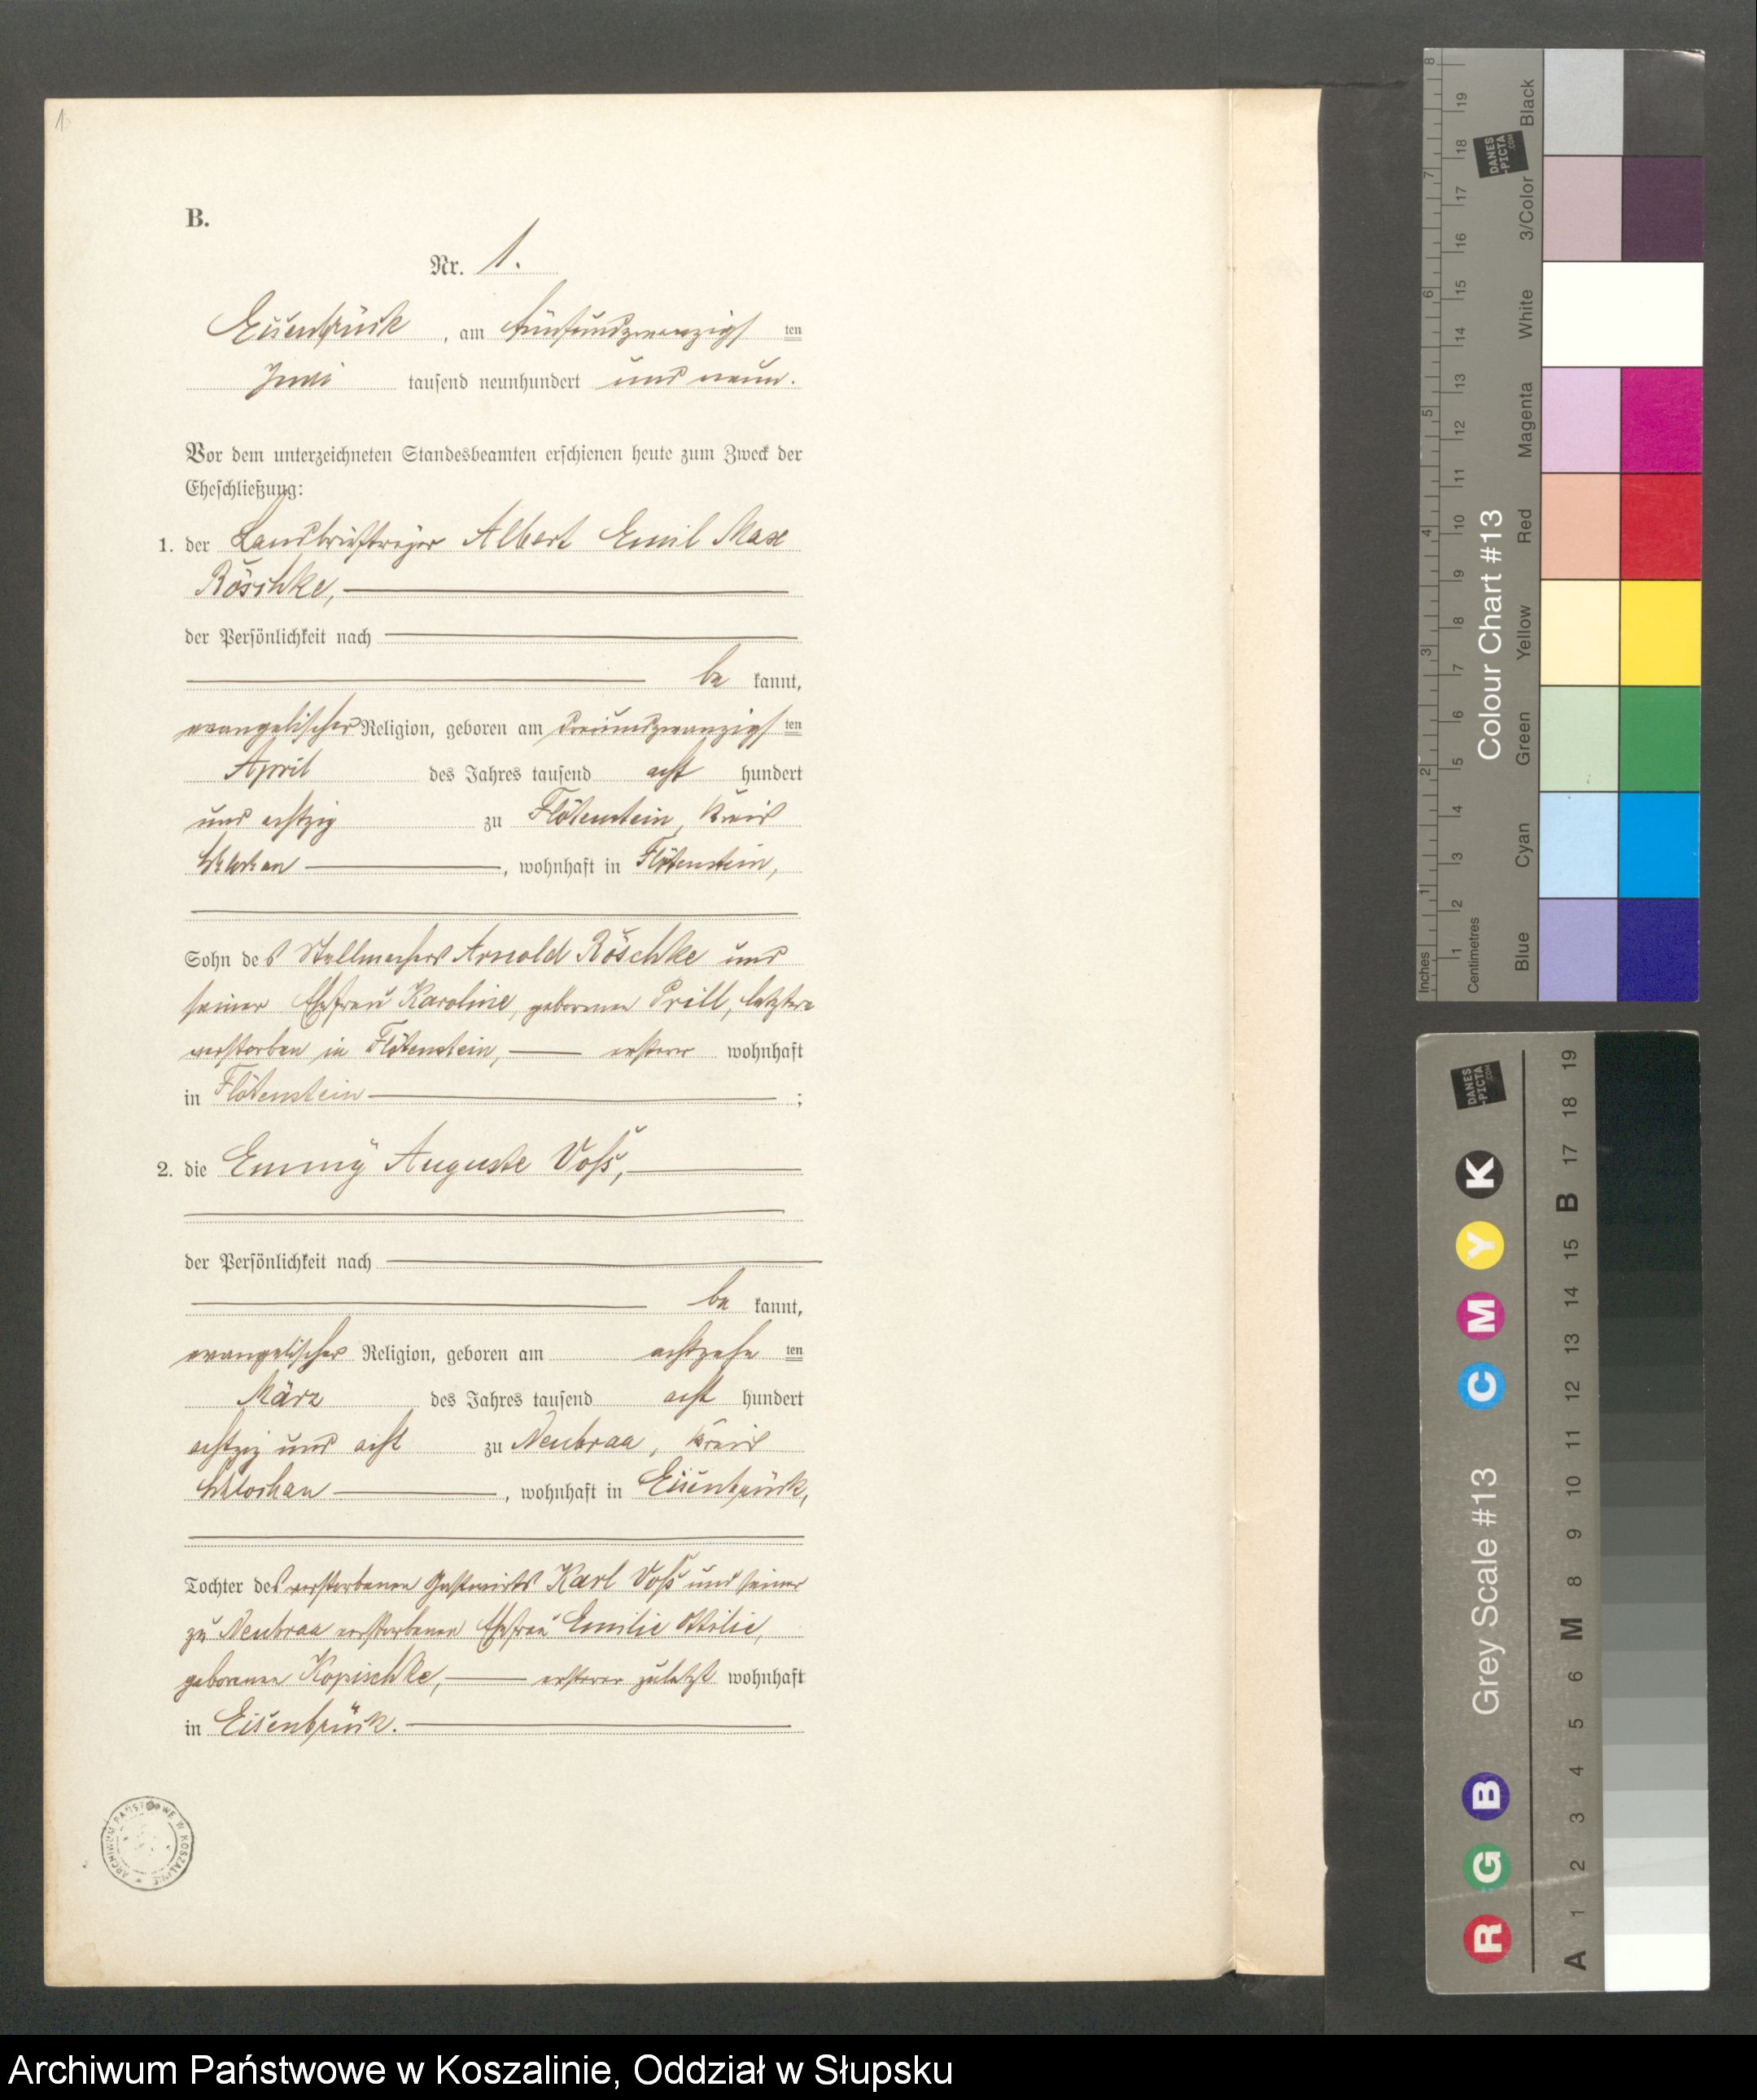 1
B.
Nr. 1.
Eisenbrück, am fünfundzwanzigsten
Juni tausend neunhundert und neun.
Vor dem unterzeichneten Standesbeamten erschienen heute zum Zweck der
Eheschließung:
1. der Landbriefträger Albert Emil Max
Röschke,
der Persönlichkeit nach
be kannt,
evangelischer Religion, geboren am dreiundzwanzigsten
April des Jahres tausend acht hundert
und achtzig zu Flötenstein, Kreis
Schlochau, wohnhaft in Flötenstein,
Sohn des Stellmachers Arnold Röschke und
seiner Ehefrau Karoline, geborenen Prill, letztere
verstorben in Flötenstein, ersterer wohnhaft
in Flötenstein ;
2. die Emmy Auguste Voß,
der Persönlichkeit nach
be kannt,
evangelischer Religion, geboren am achtzehnten
März des Jahres tausend acht hundert
achtzig und acht zu Neubraa, Kreis
Schlochau, wohnhaft in Eisenbrück,
Tochter des verstorbenen Gastwirts Karl Voß und seiner
zu Neubraa verstorbenen Ehefrau Emilie Ottilie,
geborenen Kopischke, ersterer zuletzt wohnhaft
in Eisenbrück.
ARCHIWUM PAŃSTWOWE W KOSZALINIE
Inches
1 2 3 4 5 6 7 8
Centimetres
1 2 3 4 5 6 7 8 9 10 11 12 13 14 15 16 17 18 19
Colour Chart #13
Blue Cyan Green Yellow Red Magenta White 3/Color Black
DANES-PICTA.COM
Grey Scale #13
R G B C M Y K
DANES-PICTA.COM
A 1 2 3 4 5 6 M 8 9 10 11 12 13 14 15 B 17 18 19
Archiwum Państwowe w Koszalinie, Oddział w Słupsku